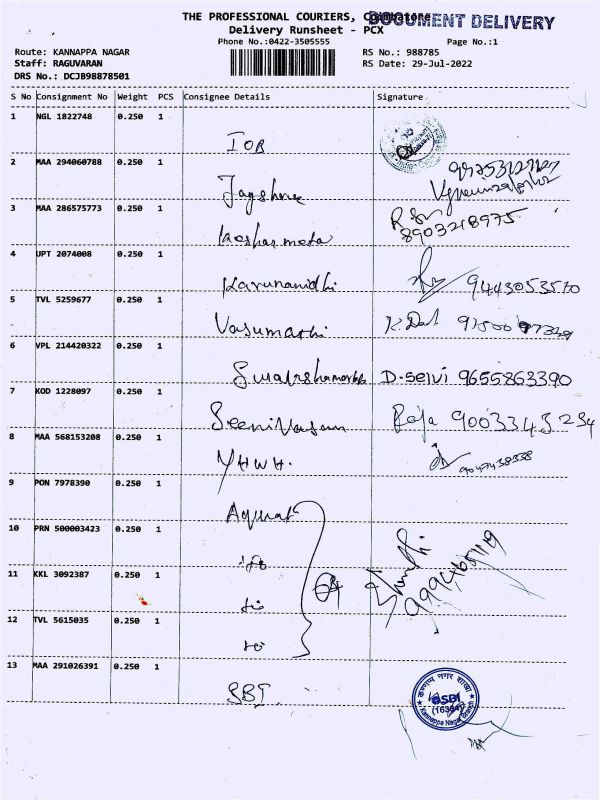 THE PROFESSIONAL COURIERS, Coimbatore
DOCUMENT DELIVERY
Delivery Runsheet - PCX
Phone No.:0422-3505555 Page No.:1
Route: KANNAPPA NAGAR RS No.: 988785
Staff: RAGUVARAN RS Date: 29-Jul-2022
DRS No.: DCJB98878501
S No Consignment No Weight PCS Consignee Details Signature
1 NGL 1822748 0.250 1
IOB
2 MAA 294060788 0.250 1
Jayshree
3 MAA 286575773 0.250 1
8903218975
4 UPT 2074008 0.250 1
Karunanidhi
5 TVL 5259677 0.250 1
Vasumathi
6 VPL 214420322 0.250 1
D-Selvi 9655863390
7 KOD 1228097 0.250 1
Seenivasan Raja 9003343234
8 MAA 568153208 0.250 1
YHWH.
9 PON 7978390 0.250 1
10 PRN 500003423 0.250 1
11 KKL 3092387 0.250 1
12 TVL 5615035 0.250 1
13 MAA 291026391 0.250 1
SBI
कण्णप्प नगर शाखा
SBI
Kannappa Nagar Branch